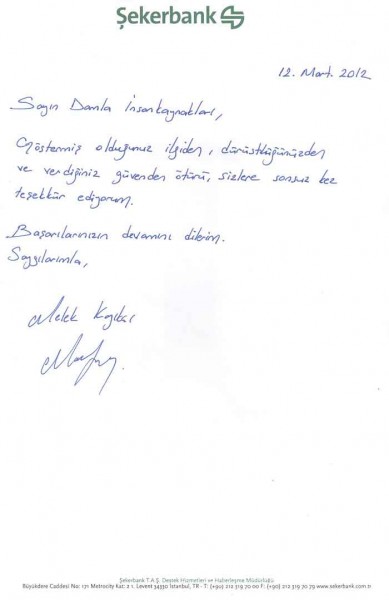 Şekerbank
12. Mart. 2012
Sayın Damla İnsankaynakları,
Göstermiş olduğunuz ilgiden, dürüstlüğünüzden
ve verdiğiniz güvenden ötürü, sizlere sonsuz kez
teşekkür ediyorum.
Başarılarınızın devamını dilerim.
Saygılarımla,
Melek
Şekerbank T.A.Ş. Destek Hizmetleri ve Haberleşme Müdürlüğü
Büyükdere Caddesi No: 171 Metrocity Kat: 2 1. Levent 34330 İstanbul, TR - T: (+90) 212 319 70 00 F: (+90) 212 319 70 79 www.sekerbank.com.tr